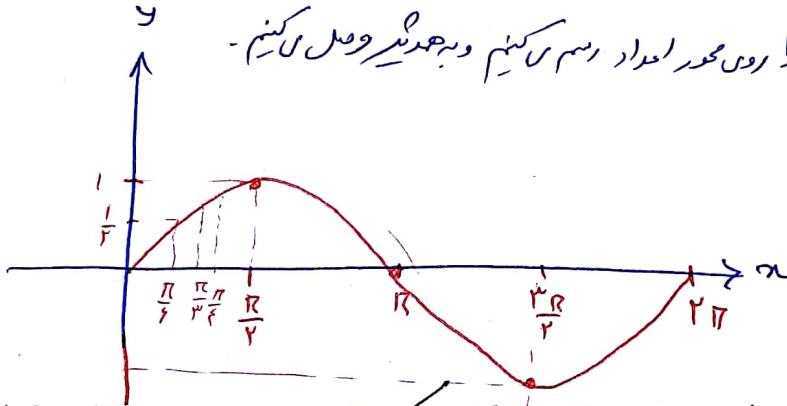 y
روی محور اعداد رسم می کنیم و به همدیگر وصل می کنیم.
۱
۱/۲
π/۶ π/۳ π/۴ π/۲ π ۳π/۲ ۲π
x